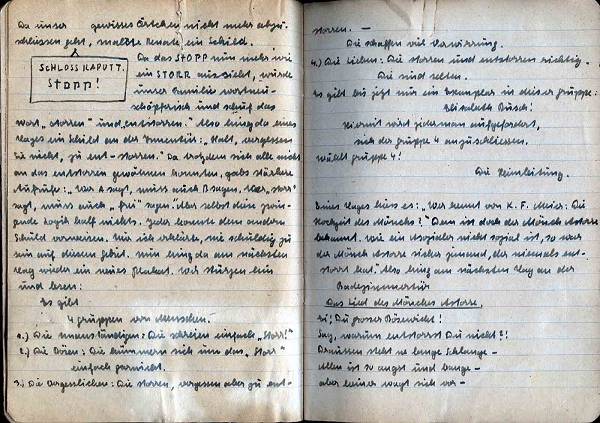 Da unser gewisses Örtchen nicht mehr abzu-
schliessen geht, malte Renate ein Schild.
SCHLOSS KAPUTT.
Stopp!
Da das STOPP nun mehr wie
ein STORR aussieht, wurde
unsere Familie wortneu-
schöpferisch und schuf das
Wort „storren" und „entstorren." Also hing da eines
Tages ein Schild an der Innentür: „Halt, vergessen
Sie nicht, zu ent-storren." Da trotzdem sich alle nicht
an das entstorren gewöhnen konnten, gabs stärkere
Aufrufe: „Wer A sagt, muss auch B sagen. Wer „storr"
sagt, muss auch „frei" sagen." Aber selbst diese zwin-
gende Logik half nichts. Jeder konnte dem andern
Schuld vorweisen. Wie ich erklärte, nie schuldig zu
sein auf diesem Gebiet. Nun hing da am nächsten
Tag wieder ein neues Plakat. Wir stürzen hin
und lesen:
Es gibt
4 Gruppen von Menschen.
1.) Die Unanständigen: Die schreien einfach „Storr!"
2.) Die Bösen: Die kümmern sich um das „Storr"
einfach garnicht.
3.) Die Vergesslichen: Die storren, vergessen aber zu ent-
storren. —
Die schaffen viel Verwirrung.
4.) Die Lieben: Die storren und entstorren richtig.
Die sind selten.
Es gibt bis jetzt nur ein Exemplar in dieser Gruppe:
Elisabeth Busch!
Hiermit wird jedermann aufgefordert,
sich der Gruppe 4 anzuschliessen.
Wählt Gruppe 4!
Die Heimleitung.
Eines Tages hiess es: „Wer kennt von K. F. Meier: Die
Hochzeit des Mönchs?" Denn ist doch der Mönch Astorre
bekannt. Wie ein Asozialer nicht sozial ist, so war
der Mönch Astorre sicher jemand, der niemals ent-
storrt hat. Also hing am nächsten Tag an der
Badezimmertür
Das Lied des Mönches Astorre.
Ei, Du grosser Bösewicht!
Sag, warum entstorrst Du nicht?!
Draussen steht ne lange Schlange —
Allen ist so angst und bange —
aber keiner wagt sich vor —